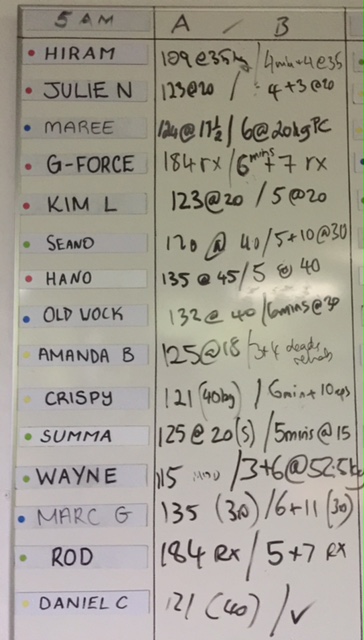 5 AM A / B
HIRAM 109@35kg / 4min+4@35
JULIE N 123@20 / 4+3@20
MAREE 124@17½ / 6@20kg PC
G-FORCE 184 rx / 6mins+7 rx
KIM L 123@20 / 5@20
SEANO 120 @ 40/5+10@30
HANO 135 @ 45/5 @ 40
OLD VOCK 132 @ 40 /6mins@30
AMANDA B 125@18 /3+4 deads
CRISPY 121 (40kg) / 6min+10reps
SUMMA 125@20(S) /5mins@15
WAYNE 115 /3+6@52.5kg
MARC G 135 (30) /6+11 (30)
ROD 184 RX / 5+7 RX
DANIEL C 121 (40) / ✓